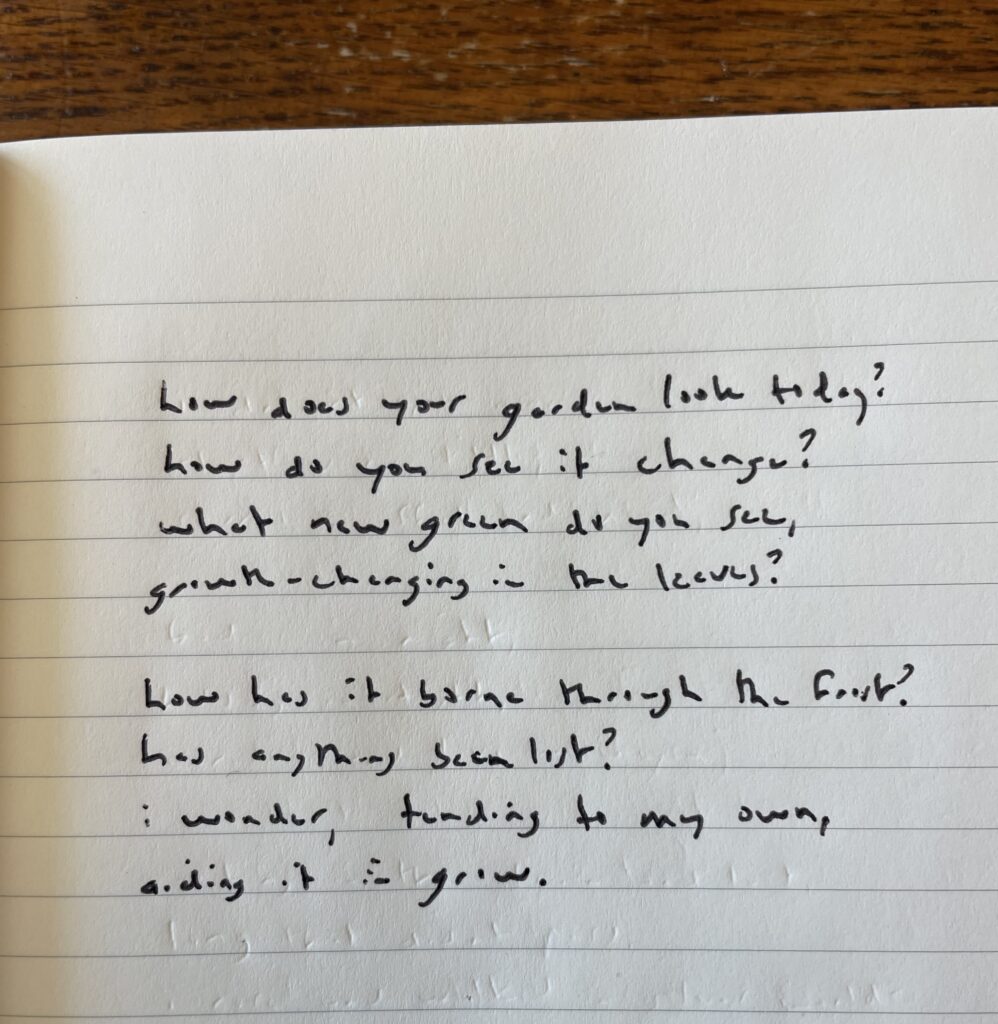 how does your garden look today?
how do you see it change?
what new green do you see,
growth-changing in the leaves?
how has it borne through the frost?
has anything been lost?
i wonder, tending to my own,
aiding it in grow.